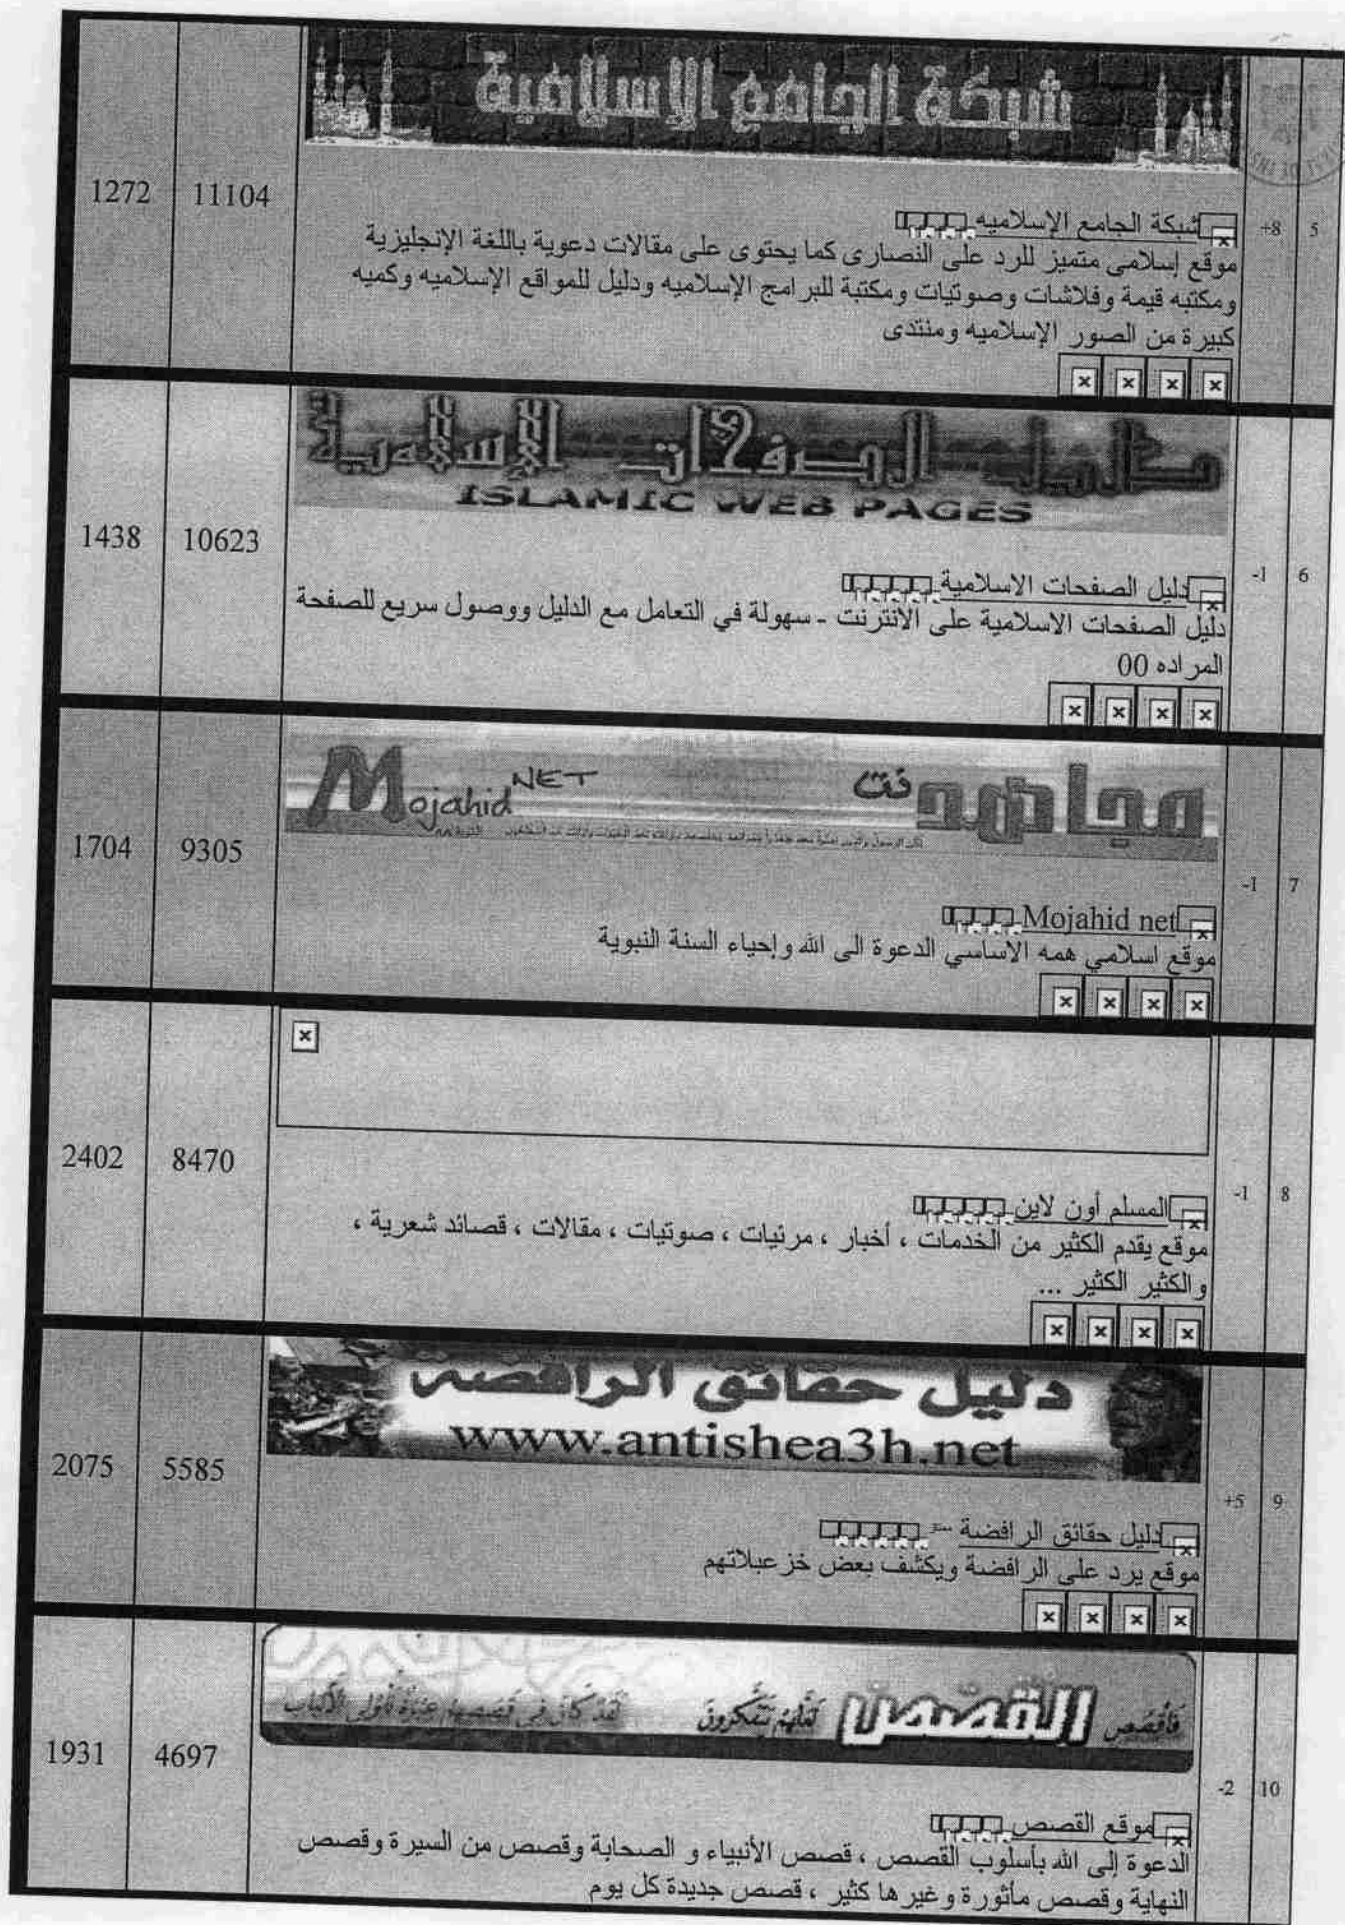 شبكة الجامع الاسلامية
5
+8
شبكة الجامع الإسلاميه
موقع إسلامى متميز للرد على النصارى كما يحتوى على مقالات دعوية باللغة الإنجليزية
ومكتبه قيمة وفلاشات وصوتيات ومكتبة للبرامج الإسلاميه ودليل للمواقع الإسلاميه وكميه
كبيرة من الصور الإسلاميه ومنتدى
11104
1272
دليل الصفحات الإسلامية
ISLAMIC WEB PAGES
6
-1
دليل الصفحات الاسلامية
دليل الصفحات الاسلامية على الانترنت - سهولة في التعامل مع الدليل ووصول سريع للصفحة
المراده 00
10623
1438
مجاهد نت
Mojahid NET
7
-1
Mojahid net
موقع اسلامي همه الاساسي الدعوة الى الله وإحياء السنة النبوية
9305
1704
8
-1
المسلم أون لاين
موقع يقدم الكثير من الخدمات ، أخبار ، مرئيات ، صوتيات ، مقالات ، قصائد شعرية ،
والكثير الكثير ...
8470
2402
دليل حقائق الرافضة
www.antishea3h.net
9
+5
دليل حقائق الرافضة
موقع يرد على الرافضة ويكشف بعض خزعبلاتهم
5585
2075
فَاقْصُصِ القصص لَعَلَّهُمْ يَتَفَكَّرُونَ لَقَدْ كَانَ فِي قَصَصِهِمْ عِبْرَةٌ لِأُولِي الْأَلْبَابِ
10
-2
موقع القصص
الدعوة إلى الله بأسلوب القصص ، قصص الأنبياء و الصحابة وقصص من السيرة وقصص
النهاية وقصص مأثورة وغيرها كثير ، قصص جديدة كل يوم
4697
1931